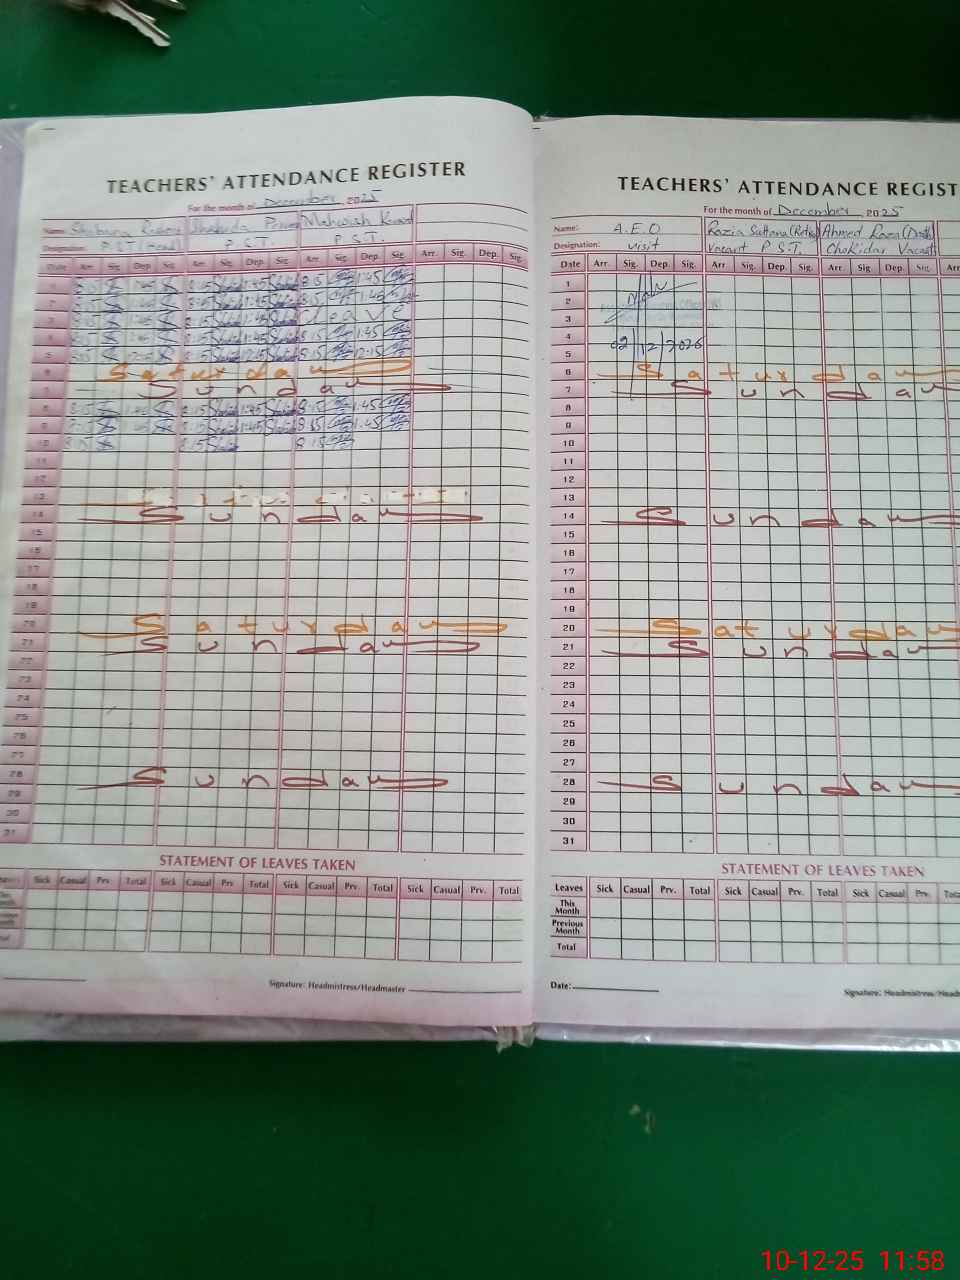 TEACHERS' ATTENDANCE REGISTER
For the month of December 2025
Name: Shabana Shahida Mehwish
Designation: P.S.T (Head) P.S.T. P.S.T.
Date Arr. Sig. Dep. Sig. Arr. Sig. Dep. Sig. Arr. Sig. Dep. Sig. Arr. Sig. Dep. Sig.
1 8:15 1:45 8:15 1:45 8:15 1:45
2 8:15 1:45 8:15 1:45 8:15 1:45
3 8:15 1:45 8:15 1:45 Leave
4 8:15 1:45 8:15 1:45 8:15 1:45
5 8:15 12:15 8:15 12:15 8:15 12:15
6 Saturday
7 Sunday
8 8:15 1:45 8:15 1:45 8:15 1:45
9 8:15 1:45 8:15 1:45 8:15 1:45
10 8:15 8:15 8:15
11
12
13
14 Sunday
15
16
17
18
19
20 Saturday
21 Sunday
22
23
24
25
26
27
28 Sunday
29
30
31
STATEMENT OF LEAVES TAKEN
Sick Casual Prv. Total Sick Casual Prv. Total Sick Casual Prv. Total Sick Casual Prv. Total
Signature: Headmistress/Headmaster
TEACHERS' ATTENDANCE REGIST
For the month of December 2025
Name: A.E.O Razia Sultana Ahmed Raza
Designation: visit Vacant P.S.T. Chokidar Vacant
Date Arr. Sig. Dep. Sig. Arr Sig. Dep. Sig. Arr. Sig Dep. Sig. Arr
1
2
3
4
02/12/2025
5
6 Saturday
7 Sunday
8
9
10
11
12
13
14 Sunday
15
16
17
18
19
20 Saturday
21 Sunday
22
23
24
25
26
27
28 Sunday
29
30
31
STATEMENT OF LEAVES TAKEN
Leaves Sick Casual Prv. Total Sick Casual Prv. Total Sick Casual Prv. Total
This Month
Previous Month
Total
Date:
Signature: Headmistress/Head
10-12-25 11:58